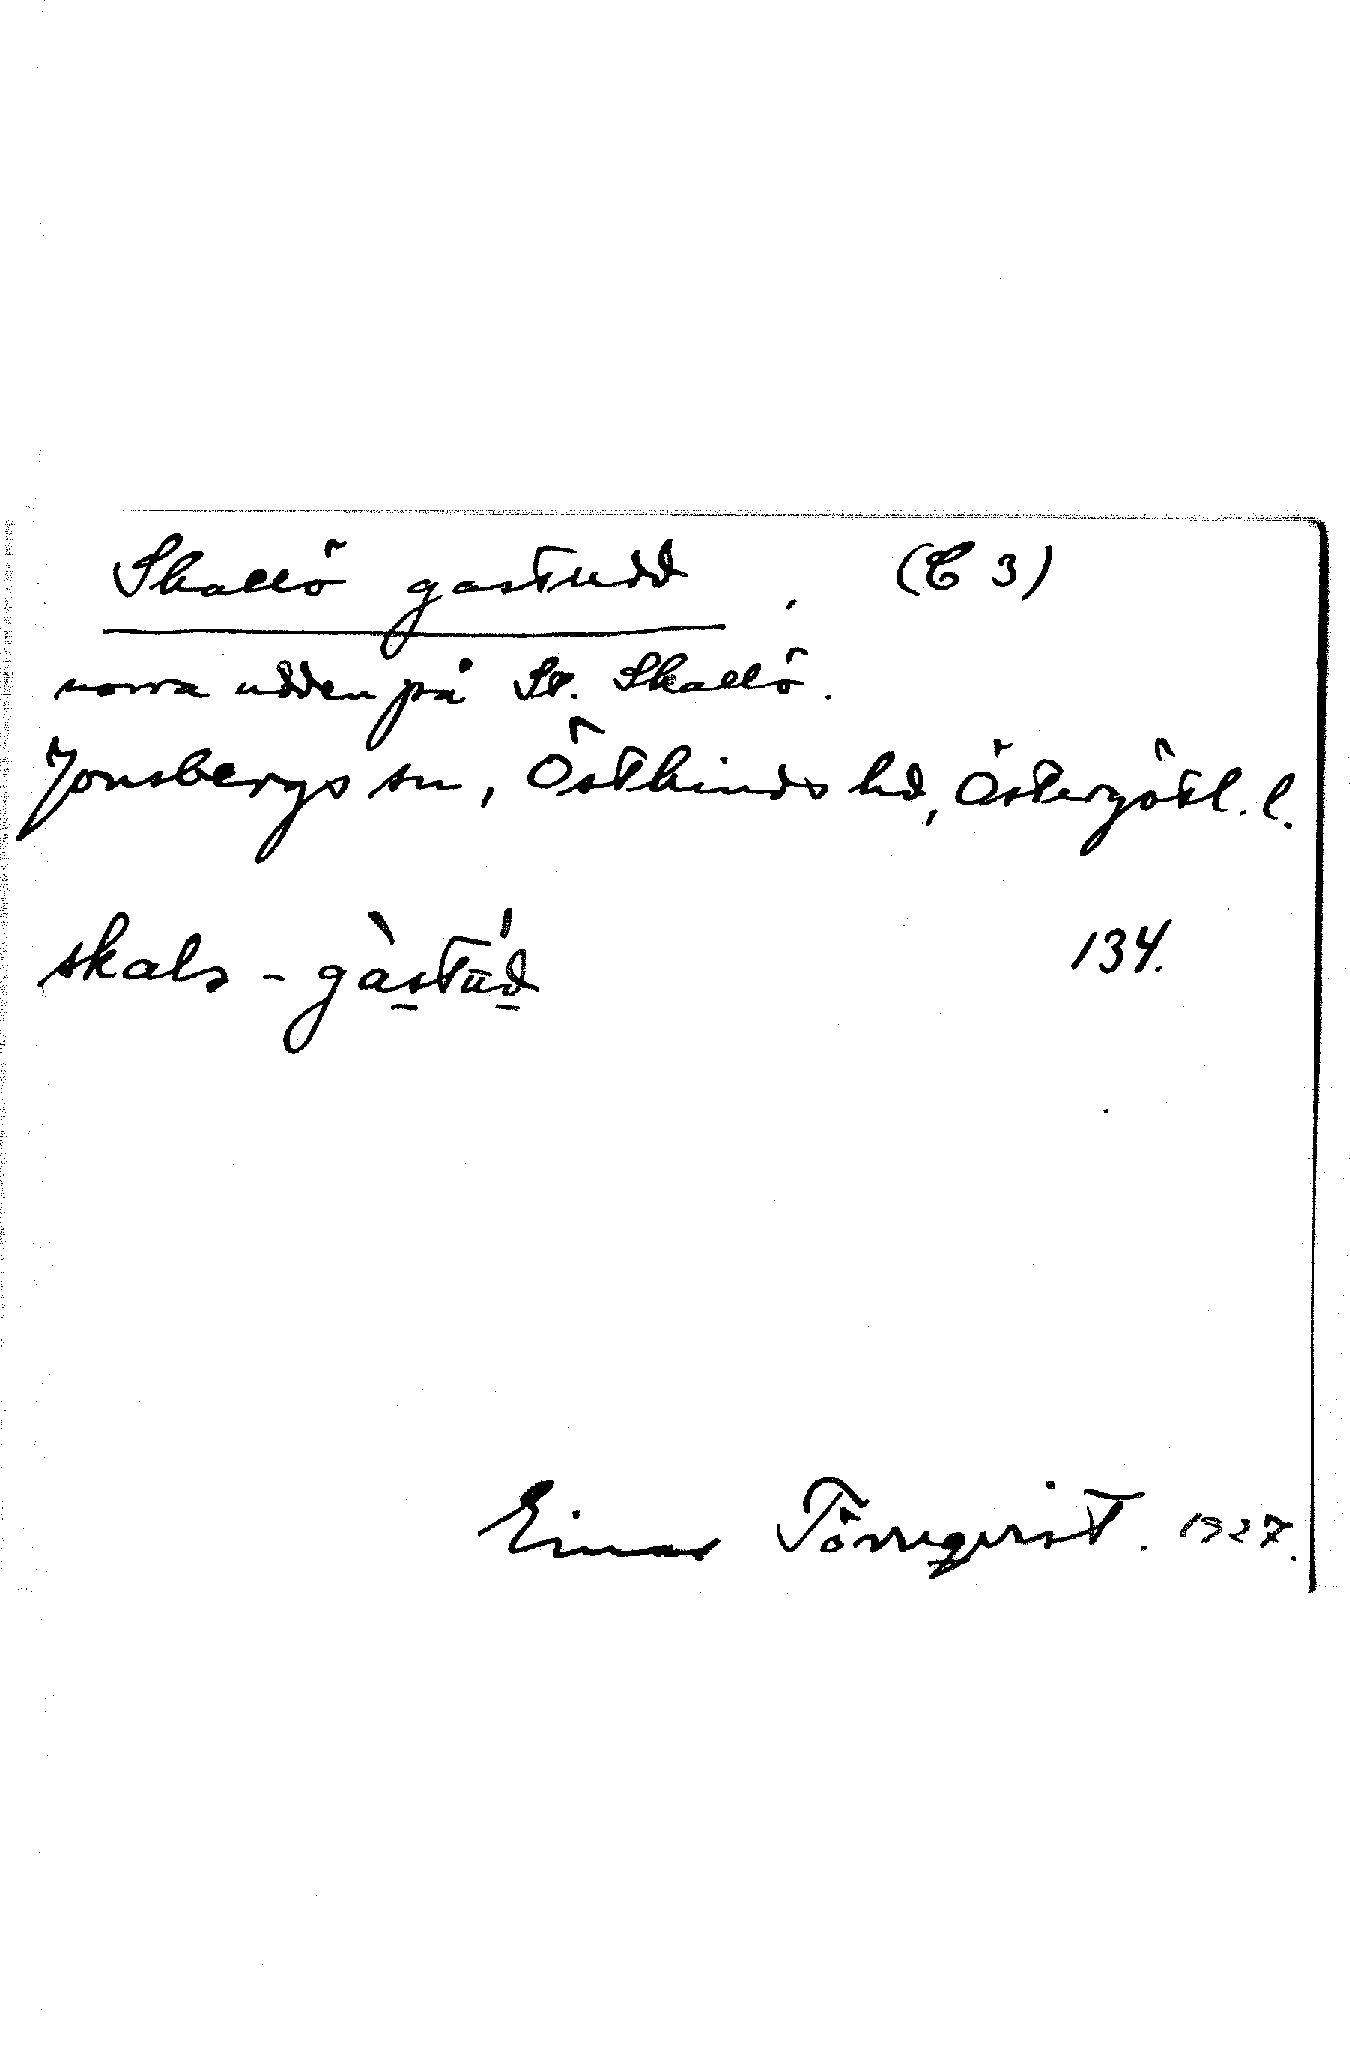 Skallö gastudd (C 3)
norra udden på St. Skallö.
Jonsbergs sn, Östkinds hd, Östergötl. l.
skalə - gàstúd 134.
Einar Törnqvist. 1927.